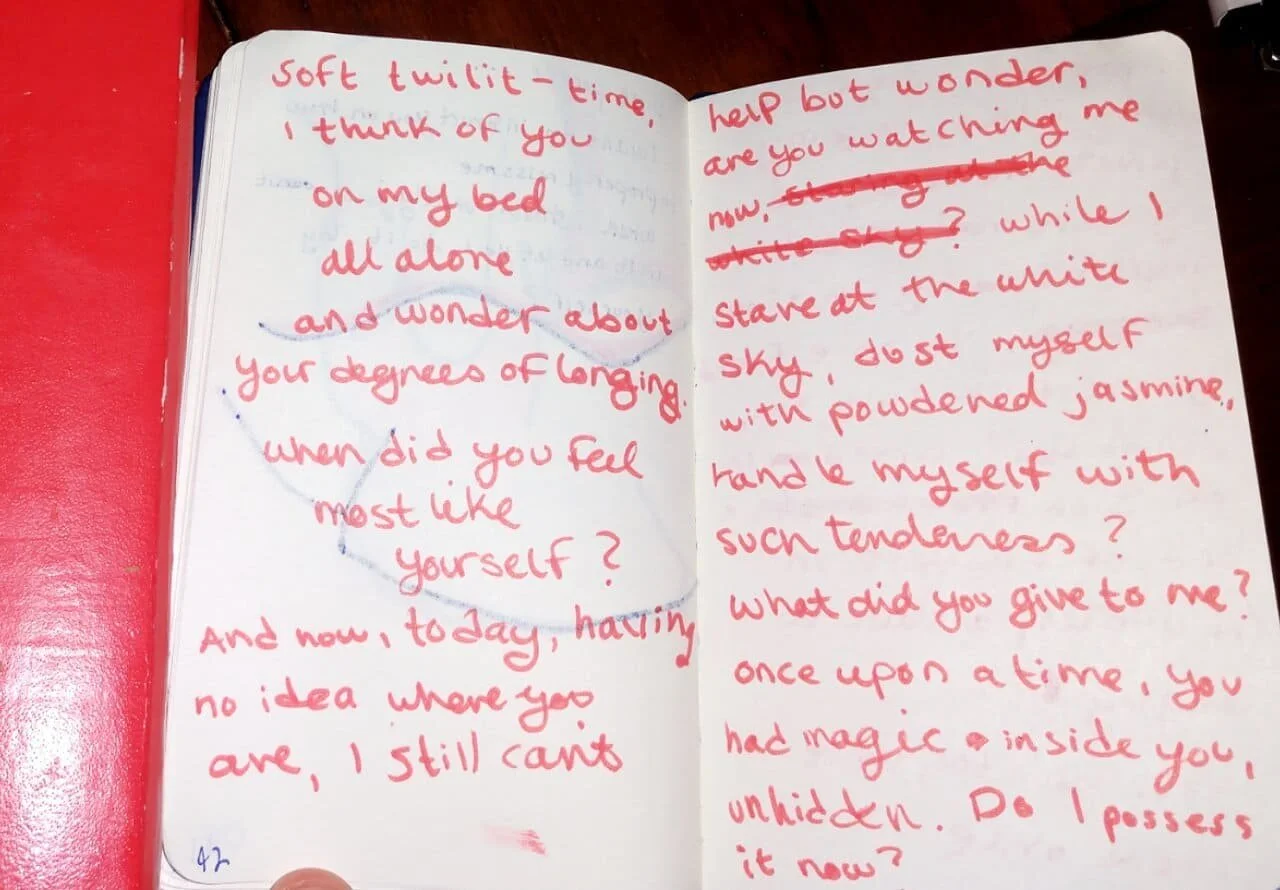 soft twilit - time,
I think of you
on my bed
all alone
and wonder about
your degrees of longing.
when did you feel
most like
yourself?
And now, today, having
no idea where you
are, I still can't
42
help but wonder,
are you watching me
now, staring at the
white sky? while I
stare at the white
sky, dust myself
with powdered jasmine,
handle myself with
such tenderness?
what did you give to me?
once upon a time, you
had magic inside you,
unhidden. Do I possess
it now?